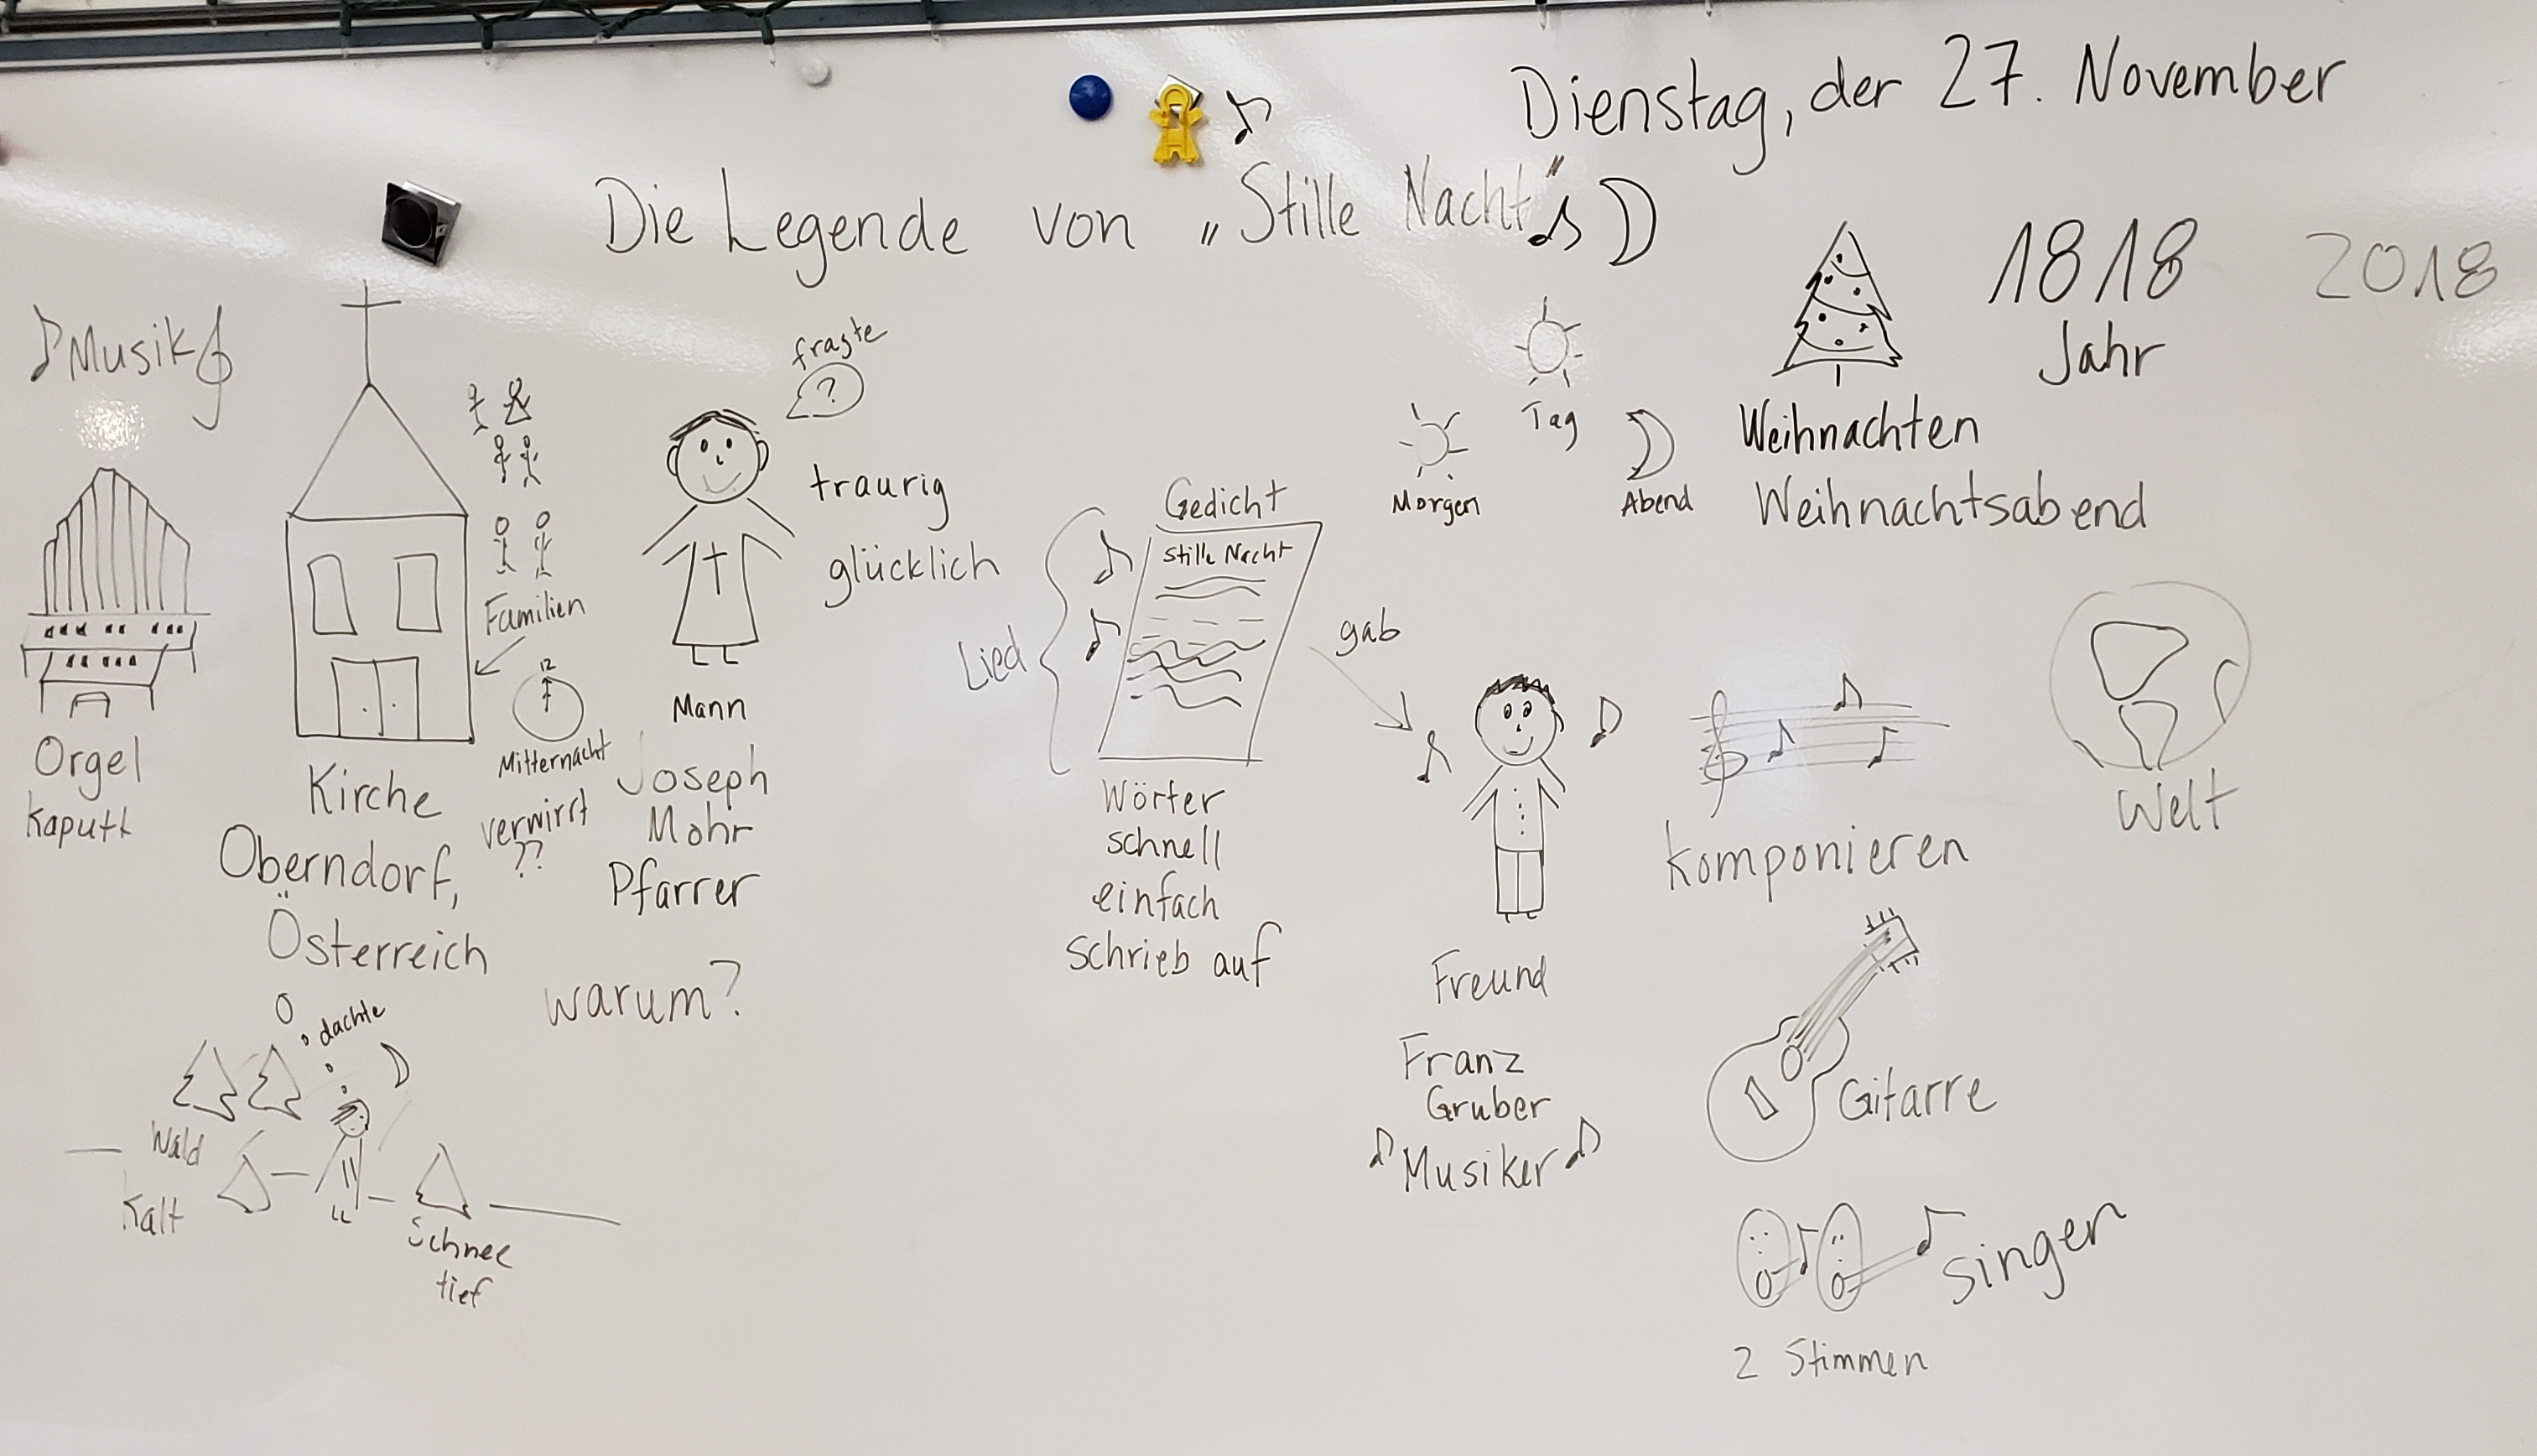 Dienstag, der 27. November
Die Legende von „Stille Nacht"
1818 2018
Jahr
Musik
fragte
?
Tag
Morgen
Abend
Weihnachten
Weihnachtsabend
traurig
glücklich
Gedicht
Stille Nacht
Lied
gab
Familien
12
Mitternacht
Orgel
kaputt
Kirche
Oberndorf,
Österreich
verwirrt
??
Mann
Joseph
Mohr
Pfarrer
warum?
Wörter
schnell
einfach
schrieb auf
Freund
Franz
Gruber
Musiker
komponieren
Welt
Gitarre
singen
2 Stimmen
dachte
Wald
kalt
Schnee
tief